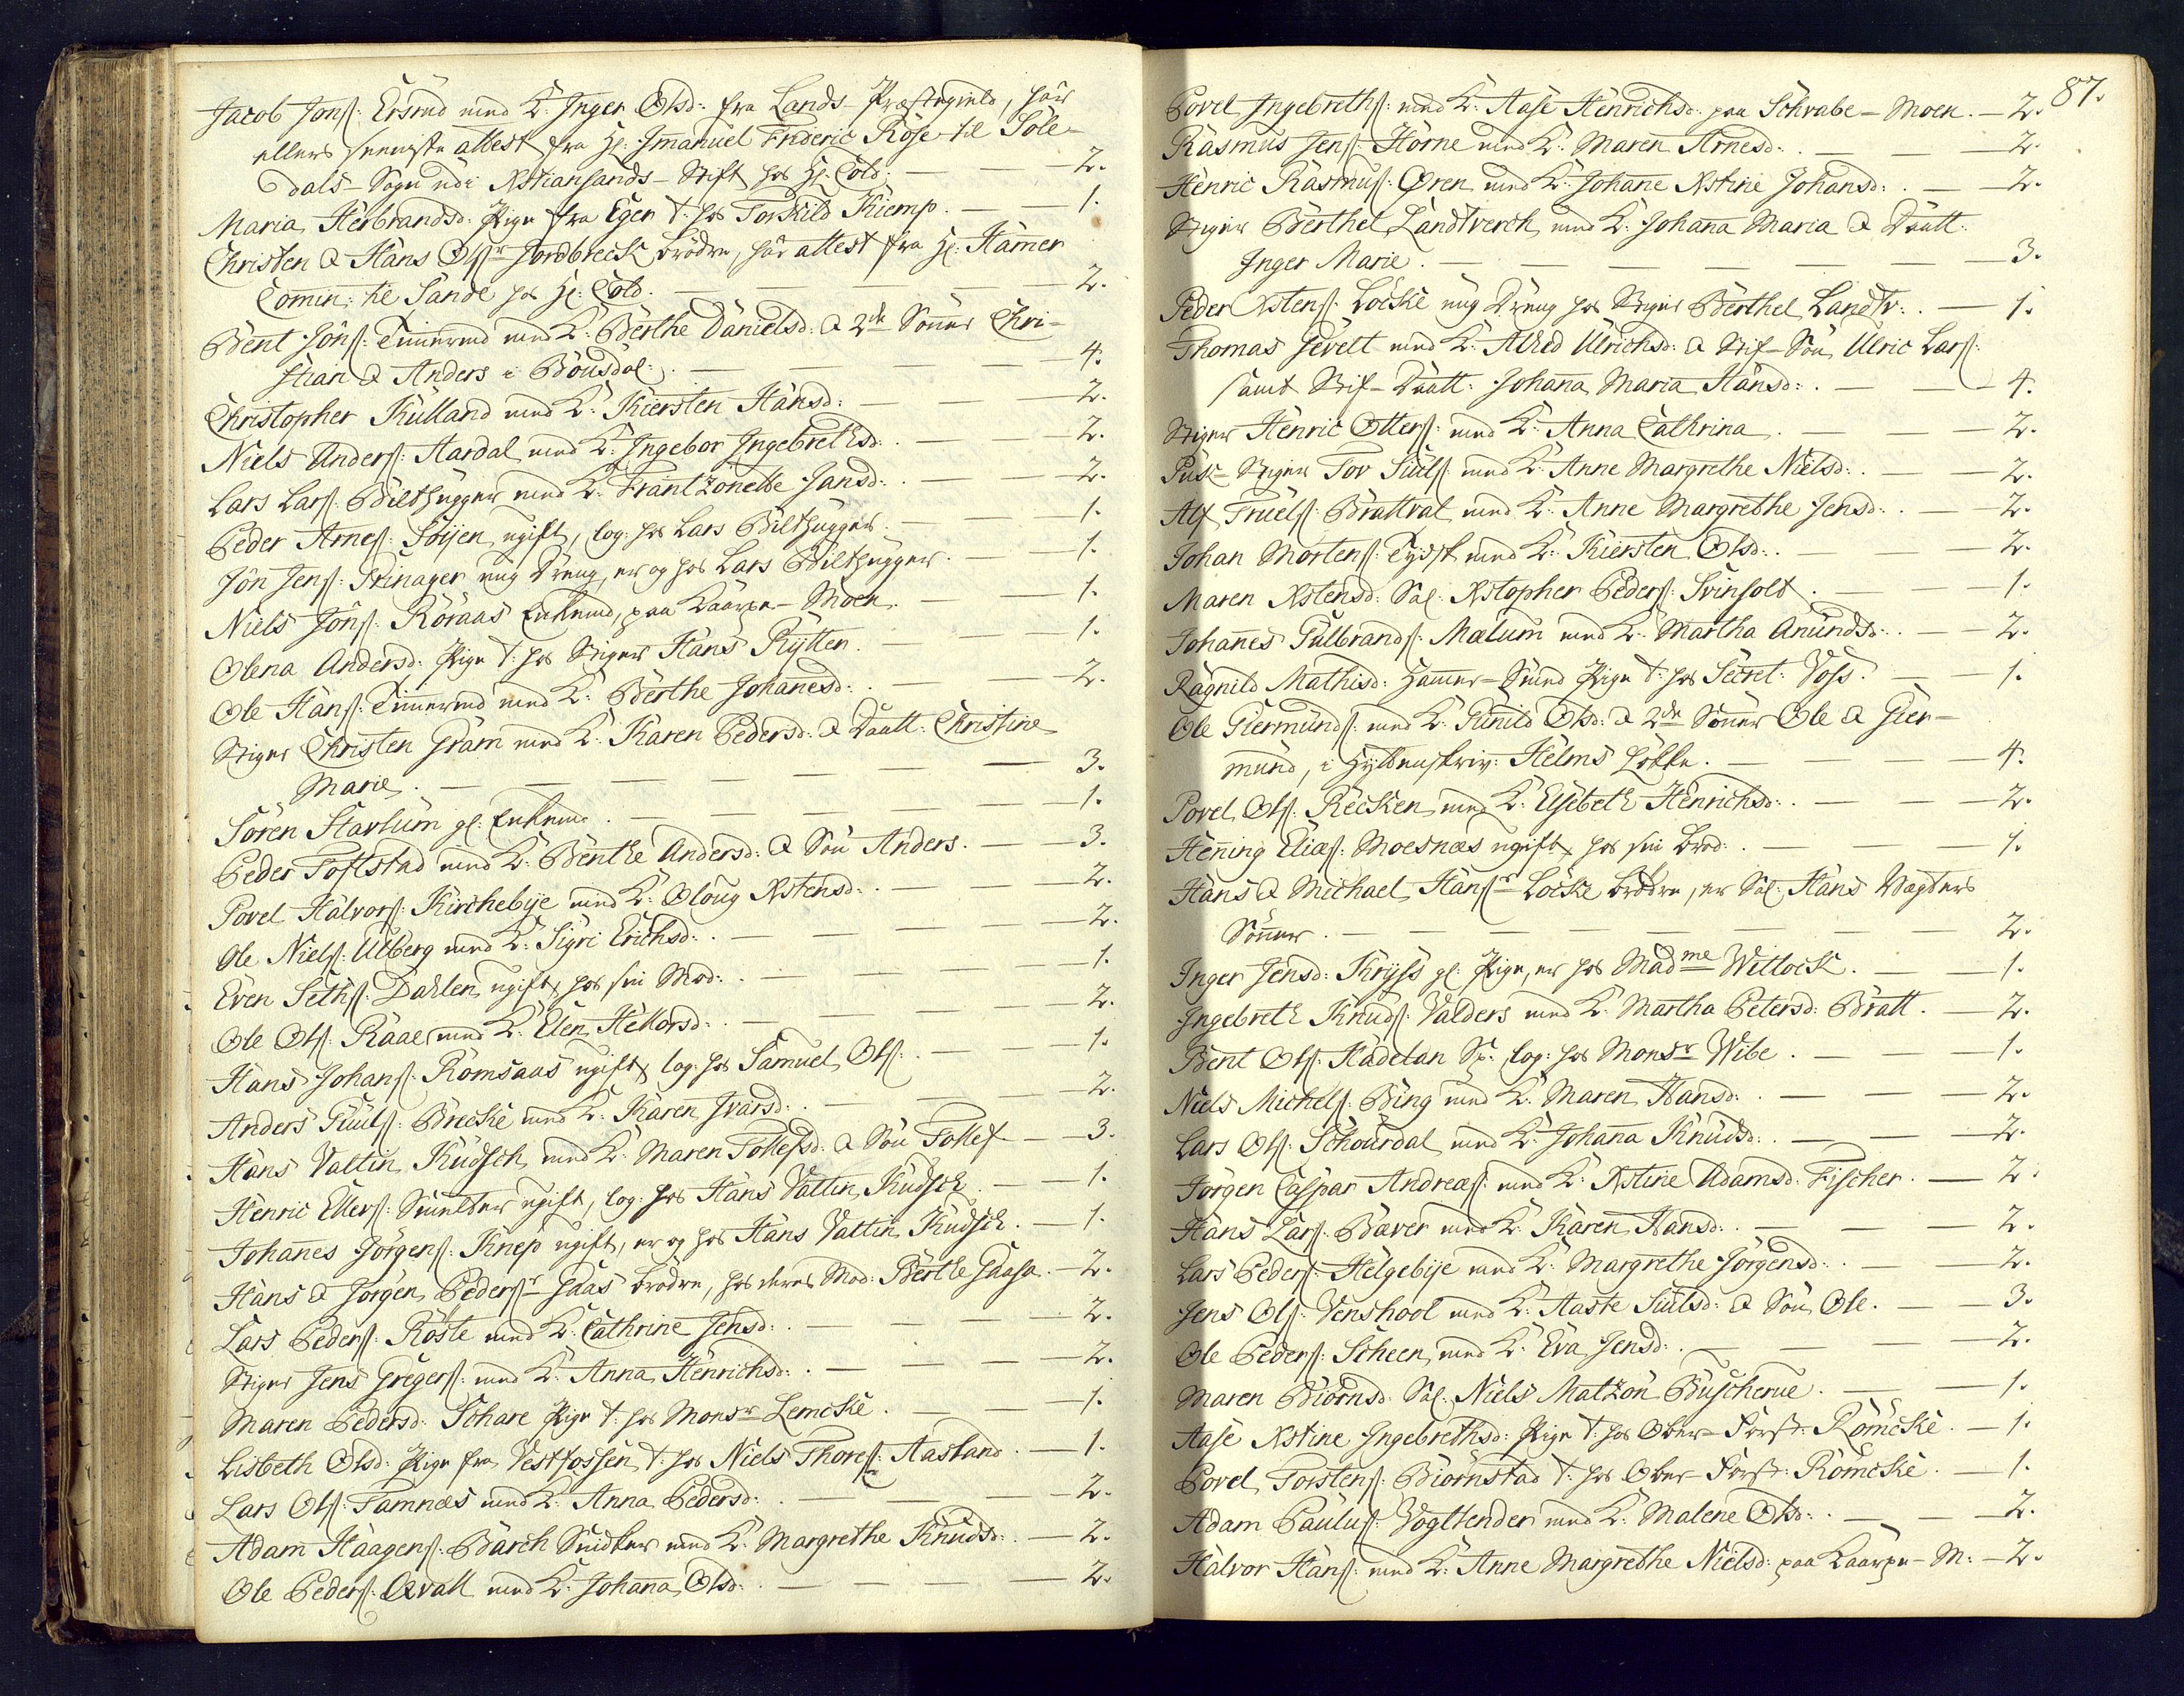 Jacob Jonſ: Ersrud med K: Inger Olsd: fra Lands-Præstegield, har
ellers seeniste attest fra Hr: Imanuel Frideric Röse til Sole-
dals-Sogn udi Xstiansands-Stift hos Hr: Cold. — 2.
Maria Herbrandsd: Pige fra Eger t: hos Torkild Kiemp. — 1.
Christen & Hans Olſr Jordbreck brödre, har attest fra Hr: Hamer
Comin: til Sande hos Hr: Cold. — 2.
Bent Jönſ: Timmermd med K: Berthe Danielsd: & 2de Sönner Chri-
stian & Anders i Böusdal: — 4.
Christopher Kulland med K: Kiersten Hansd: — 2.
Niels Anderſ: Aardal med K: Ingebor Ingebrethsd: — 2.
Lars Larſ: Bilthugger med K: Frantzönette Jansd: — 2.
Peder Arneſ: Stijen ugift, log: hos Lars Bilthugger. — 1.
Jön Jenſ: Stinager ung Dreng, er og hos Lars Bilthugger. — 1.
Niels Jönſ: Röraas Enkemd, paa Daarpe-Moen. — 1.
Olena Andersd: Pige t: hos Stiger Hans Rytter. — 1.
Ole Hanſ: Timmermd med K: Berthe Johanesd: — 2.
Stiger Christen Gram med K: Karen Pedersd: & Daatt: Christine
Marie. — 3.
Sören Starlum gl: Enkemd. — 1.
Peder Toftstad med K: Benthe Andersd: & Sön Anders. — 3.
Povel Halvorſ: Kirchebije med K: Oloug Xstensd: — 2.
Ole Nielſ: Ulberg med K: Sigri Erichsd: — 2.
Even Sethſ: Dahlen ugift, hos sin Mod: — 1.
Ole Olſ: Raae med K: Elen Hellorsd: — 2.
Hans Johanſ: Romsaas ugift, log: hos Samuel Olſ: — 1.
Anders Guulſ: Brecke med K: Karen Ivarsd: — 2.
Hans Valtin Kudsch med K: Maren Tollefsd: & Sön Tollef — 3.
Henric Ellerſ: Smelter ugift, log: hos Hans Valtin Kudsch — 1.
Johanes Jörgenſ: Knep ugift, er og hos Hans Valtin Kudsch. — 1.
Hans & Jörgen Pederſr Gaas brödre, hos deres Mod: Berthe Gaasa. — 2.
Lars Pederſ: Röste med K: Cathrine Jensd: — 2.
Stiger Jens Gregerſ: med K: Anna Henrichsd: — 2.
Maren Pedersd: Schare Pige t: hos Monsr Lemcke. — 1.
Lisbeth Olsd: Pige fra Vestfossen t: hos Niels Thoreſ: Aasland. — 1.
Lars Olſ: Tamnæs med K: Anna Pedersd: — 2.
Adam Haagenſ: Barch Snidker med K: Margrethe Knudsd: — 2.
Ole Pederſ: Qvall med K: Johana Olsd: — 2.
87.
Povel Ingebrethſ: med K: Aase Henrichsd: paa Schrabe-Moen. — 2.
Rasmus Jenſ: Horne med K: Maren Arnesd: — 2.
Henric Rasmuſ: Ören med K: Johane Xstine Johansd: — 2.
Stiger Berthel Landtverch med K: Johana Maria & Daatt:
Inger Marie. — 3.
Peder Xstenſ: Löcke ung Dreng hos Stiger Berthel Landtv: — 1.
Thomas Jevelt med K: Alhed Ulrichsd: & Stif-Sön Ulric Larſ:
samt Stif-Daatt: Johana Maria Hansd: — 4.
Stiger Henric Otterſ: med K: Anna Cathrina. — 2.
Puk-Stiger Tov Siulſ: med K: Anne Margrethe Nielsd: — 2.
Alf Truelſ: Brattval med K: Anne Margrethe Jensd: — 2.
Johan Mortenſ: Tydsk med K: Kiersten Olsd: — 2.
Maren Xstensd: Sal: Xstopher Pederſ: Svinsolt. — 1.
Johanes Gulbrandſ: Mælum med K: Martha Anundsd: — 2.
Ragnild Mathisd: Hammer-Smed Pige t: hos Secret: Voss. — 1.
Ole Giermundſ: med K: Gunild Olsd: & 2de Sönner Ole & Gier-
mund, i Hyttenskriv: Helms Lökke. — 4.
Povel Olſ: Recken med K: Elsebeth Henrichsd: — 2.
Hening Eliæſ: Moesnæs ugift, hos sin brod: — 1.
Hans & Michael Hanſr Löcke brödre, er Sal: Hans Vægters
Sönner. — 2.
Inger Jensd: Kryss gl: Pige, er hos Madme Witlock. — 1.
Ingebreth Knudſ: Valders med K: Martha Petersd: Bratt. — 2.
Bent Olſ: Hadelan Sp: log: hos Monsr Wibe. — 1.
Niels Michelſ: Bing med K: Maren Hansd: — 2.
Lars Olſ: Schourdal med K: Johana Knudsd: — 2.
Jörgen Caspar Andreæſ: med K: Xstine Adamsd: Fischer. — 2.
Hans Larſ: Bæver med K: Karen Hansd: — 2.
Lars Pederſ: Helgebije med K: Margrethe Jörgensd: — 2.
Jens Olſ: Venshool med K: Aaste Siulsd: & Sön Ole. — 3.
Ole Pederſ: Scheen med K: Eva Jensd: — 2.
Maren Biörnsd: Sal: Niels Matzön Buscherue. — 1.
Aase Xstine Ingebrethsd: Pige t: hos Ober-Forst: Römcke. — 1.
Povel Torstenſ: Biörnstad t: hos Ober-Forst: Römcke. — 1.
Adam Pauluſ: Vogtlender med K: Malene Olsd: — 2.
Halvor Hanſ: med K: Anne Margrethe Nielsd: paa Daarpe-M: — 2.